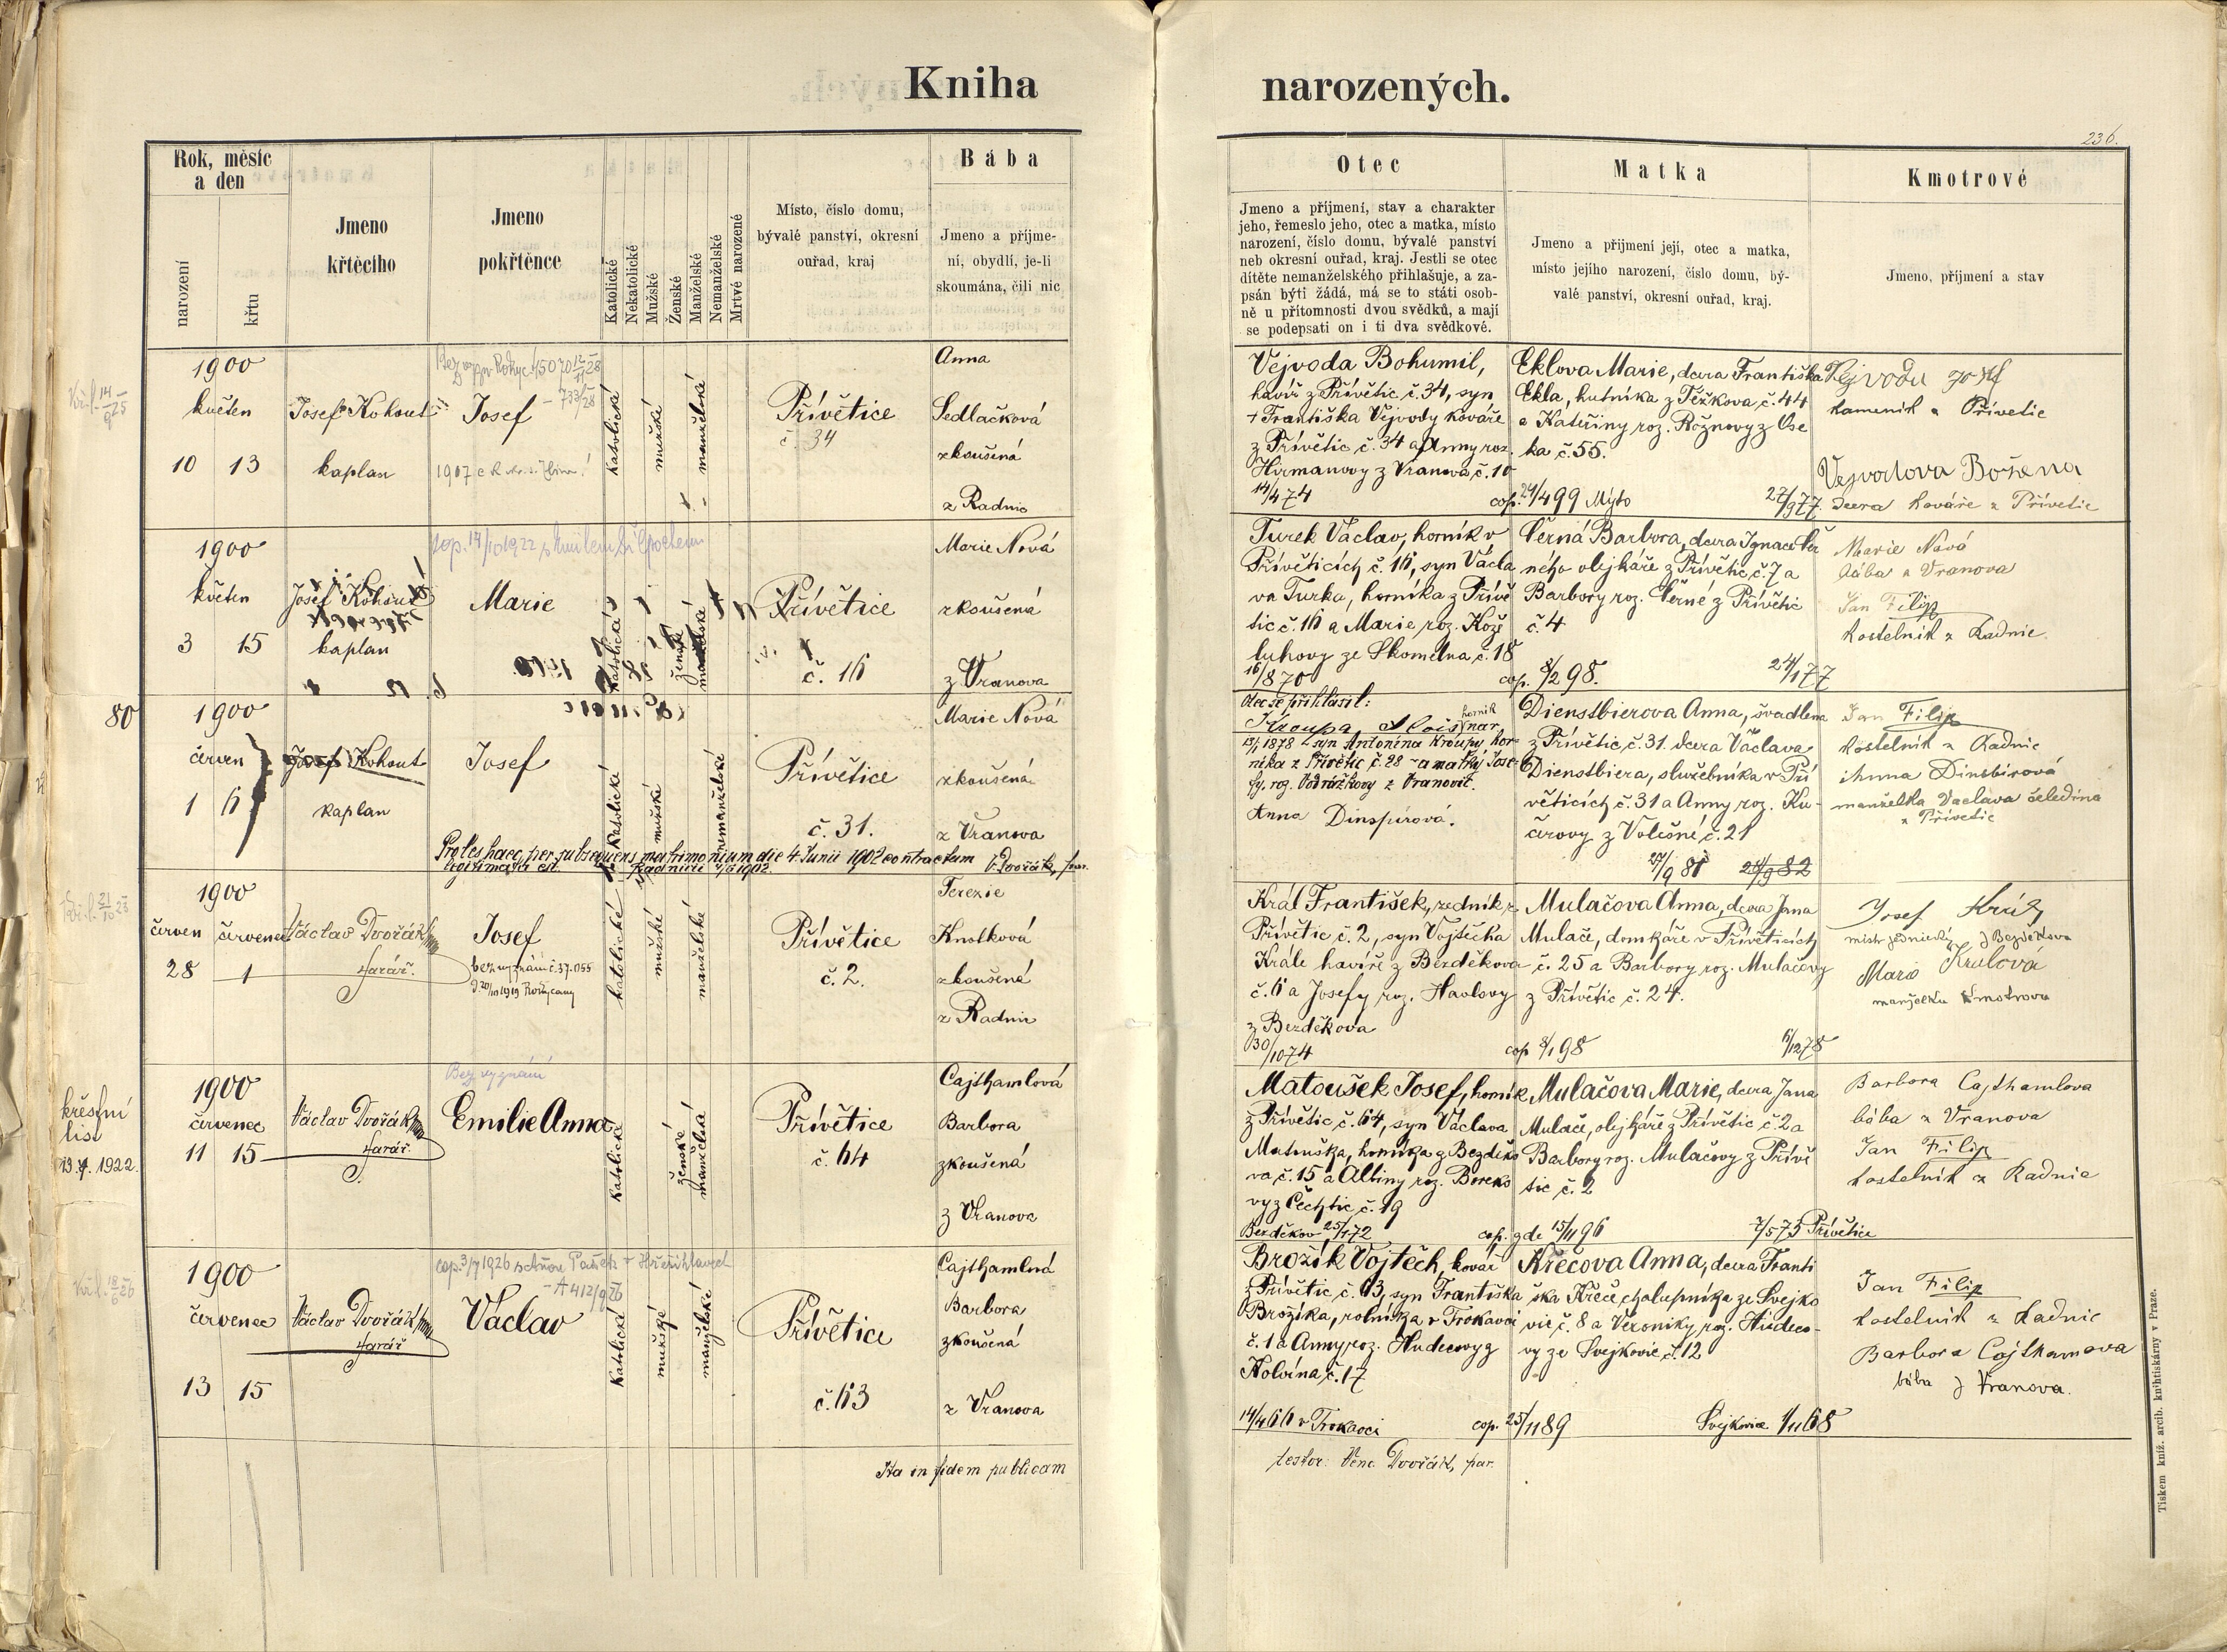 Kniha
narozených.
236.
Rok, měsíc
a den
narození
křtu
Jmeno
křtěcího
Jmeno
pokřtěnce
Katolické
Nekatolické
Mužské
Ženské
Manželské
Nemanželské
Mrtvě narozené
Místo, číslo domu,
bývalé panství, okresní
ouřad, kraj
Bába
Jmeno a příjme-
ní, obydlí, je-li
skoumána, čili nic
Otec
Jmeno a příjmení, stav a charakter
jeho, řemeslo jeho, otec a matka, místo
narození, číslo domu, bývalé panství
neb okresní ouřad, kraj. Jestli se otec
dítěte nemanželského přihlašuje, a za-
psán býti žádá, má se to státi osob-
ně u přítomnosti dvou svědků, a mají
se podepsati on i ti dva svědkové.
Matka
Jmeno a přijmení její, otec a matka,
místo jejího narození, číslo domu, bý-
valé panství, okresní ouřad, kraj.
Kmotrové
Jmeno, příjmení a stav
1900
květen
10 13
Josef Kohout
kaplan
Josef
katolické
mužské
manželské
Přívětice
č. 34
Anna
Sedlačková
zkoušená
z Radnic
Vejvoda Bohumil,
havíř z Přívětic č. 34, syn
† Františka Vejvody kováře
z Přívětic č. 34 a Anny roz.
Hirmanovy z Vranova č. 10
14/4 74
cop. 24/4 99 Mýto
Eklova Marie, dcera Františka
Ekla, hutníka z Těžkova č. 44
a Kateřiny roz. Rožnovy z Ose
ka č. 55.
27/9 77.
Vejvoda Josef
kameník z Přívětic
Vejvodova Božena
dcera kováře z Přívětic
1900
květen
3 15
Josef Kohout
kaplan
Marie
katolické
ženské
manželské
Přívětice
č. 16
Marie Nová
zkoušená
z Vranova
Turek Václav, horník v
Přívěticích č. 16, syn Václa
va Turka, horníka z Přívě
tic č. 16 a Marie roz. Kože
luhovy ze Skomelna č. 18
16/8 70
cop. 8/2 98.
Černá Barbora, dcera Ignace Čer
ného olejkáře z Přívětic č. 7 a
Barbory roz. Černé z Přívětic
č. 4
24/1 77
Marie Nová
bába z Vranova
Jan Filip
kostelník z Radnic
80
1900
červen
1 6
Josef Kohout
kaplan
Josef
katolické
mužské
nemanželské
Přívětice
č. 31.
Marie Nová
zkoušená
z Vranova
Proles haec per subsequens matrimonium die 4. Junii 1902 contractum
legitimata est. V. Dvořák, par.
Otec se přihlásil:
Kroupa Alois, horník nar.
13/1 1878 syn Antonína Kroupy hor-
níka z Přívětic č. 28 a matky Jose-
fy, roz. Vodrážkovy z Vranovic.
Anna Dinspírová.
Dienstbierova Anna, švadlena
z Přívětic č. 31. dcera Václava
Dienstbiera, služebníka v Pří
věticích č. 31 a Anny roz. Ku-
čerovy z Volešné č. 21
27/9 81 24/9 82
Jan Filip
kostelník z Radnic
Anna Dinsbírová
manželka Vaclava čeledína
z Přívětic
1900
červen červenec
28 1
Václav Dvořák
farář.
Josef
bez vyznání č. 37.055
d. 20/10 1919 Rokycany
katolické
mužské
manželské
Přívětice
č. 2.
Terezie
Knotková
zkoušená
z Radnic
Král František, zedník z
Přívětic č. 2, syn Vojtěcha
Krále havíře z Bezděkova
č. 6 a Josefy roz. Havlovy
z Bezděkova
30/10 74
cop 8/1 98
Mulačova Anna, dcera Jana
Mulače, domkáře v Přívěticích
č. 25 a Barbory roz. Mulačovy
z Přívětic č. 24.
6/12 78
Josef Král
mistr zednický z Bezděkova
Marie Králová
manželka kmotrova
křestní
list
19.7. 1922.
1900
červenec
11 15
Václav Dvořák
farář.
Bez vyznání
Emilie Anna
katolické
ženské
manželské
Přívětice
č. 64
Cajthamlová
Barbora
zkoušená
z Vranova
Matoušek Josef, horník
z Přívětic č. 64, syn Václava
Matouška, horníka z Bezděko
va č. 15 a Albiny roz. Boreko
vy z Čechtic č. 19
Bezděkov 25/1 72
cop. zde 15/11 96
Mulačova Marie, dcera Jana
Mulače, olejkáře z Přívětic č. 2 a
Barbory roz. Mulačovy z Přívě
tic č. 2
7/5 75 Přívětice
Barbora Cajthamlova
bába z Vranova
Jan Filip
kostelník z Radnic
1900
červenec
13 15
Václav Dvořák
farář
Václav
katolické
mužské
manželské
Přívětice
č. 63
Cajthamlová
Barbora
zkoušená
z Vranova
Brožík Vojtěch, kovář
z Přívětic č. 63, syn Františka
Brožíka, rolníka v Trokavci
č. 1 a Anny roz. Hudecovy z
Holvína č. 17
14/4 66 v Trokavci
cop. 25/11 89
Křečova Anna, dcera Franti
ška Křeče, chalupníka ze Svejko
vic č. 8 a Veroniky roz. Hudeco-
vy ze Svejkovic č. 12
Svejkovice 1/11 68
Jan Filip
kostelník z Radnic
Barbora Cajthamova
bába z Vranova.
Ita in fidem publicam
testor: Venc. Dvořák, par.
Tiskem kníž. arcib. knihtiskárny v Praze.